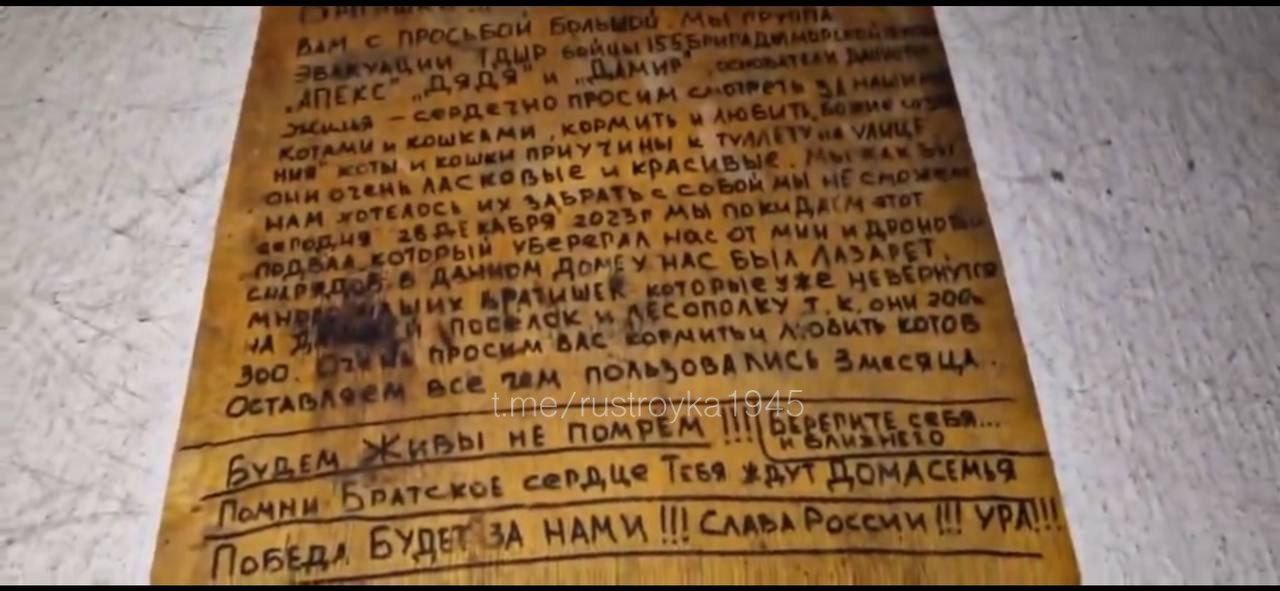 Братишка...
Вам с просьбой большой. Мы группа
эвакуации ТДЫР бойцы 155 бригады морской
„Апекс" „Дядя" и „Дамир", основатели данного
жилья – сердечно просим смотреть за нашими
котами и кошками, кормить и любить, „Божие созда
ния" коты и кошки приучины к туллету на улице
они очень ласковые и красивые. Мы как бы
нам хотелось их забрать с собой мы не сможем
сегодня 28 декабря 2023г мы покидаем этот
подвал который уберегал нас от мин и дроновы
снарядов. В данном доме у нас был лазарет,
братишек которые уже невернутся
на посёлок и лесополку т.к. они 200е
300. Очень просим вас кормить и любить котов
Оставляем все чем пользовались 3 месяца.
t.me/rustroyka1945
Будем живы не помрём !!!
Берегите себя...
и ближнего
Помни Братское сердце Тебя ждут дома семья
Победа будет за нами !!! Слава России !!! Ура!!!